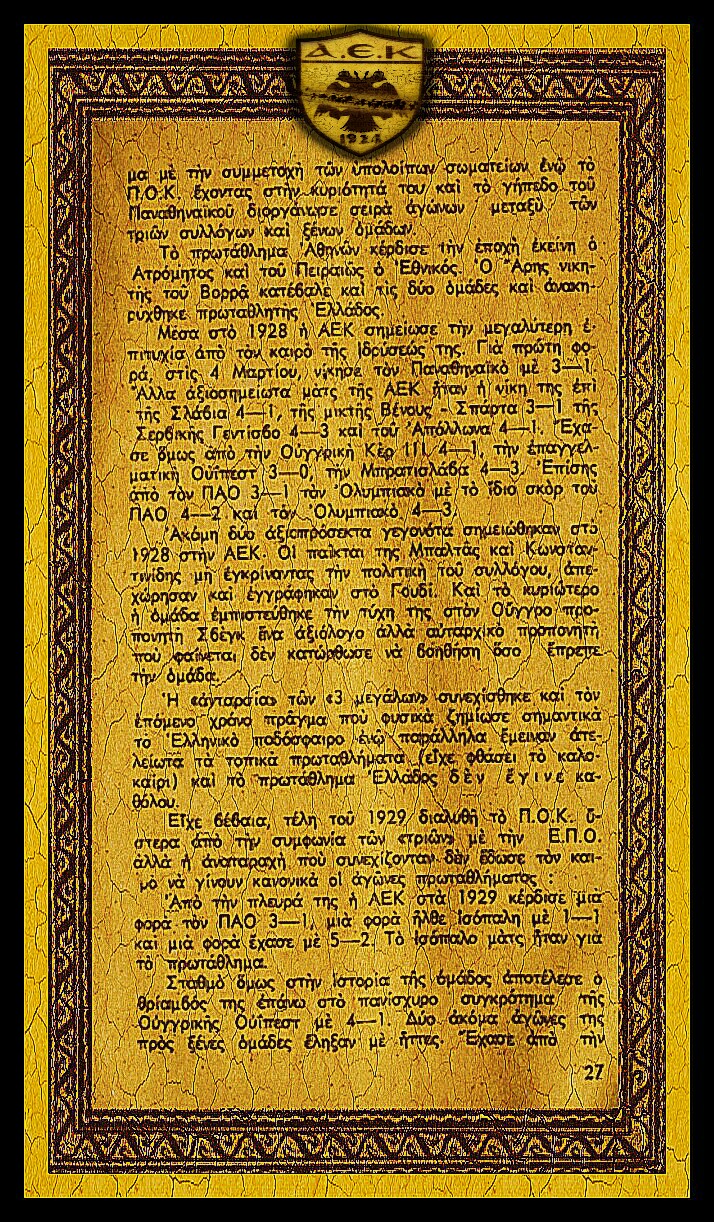 Α.Ε.Κ
1924
μα μὲ τὴν συμμετοχὴ τῶν ὑπολοίπων σωματείων ἐνῷ τὸ
Π.Ο.Κ. ἔχοντας στὴν κυριότητά του καὶ τὸ γήπεδο τοῦ
Παναθηναϊκοῦ διοργάνωσε σειρὰ ἀγώνων μεταξὺ τῶν
τριῶν συλλόγων καὶ ξένων ὁμάδων.
Τὸ πρωτάθλημα Ἀθηνῶν κέρδισε τὴν ἐποχὴ ἐκείνη ὁ
Ἀτρόμητος καὶ τοῦ Πειραιῶς ὁ Ἐθνικός. Ὁ Ἄρης νικη-
τὴς τοῦ Βορρᾶ κατέβαλε καὶ τὶς δύο ὁμάδες καὶ ἀνακη-
ρύχθηκε πρωταθλητὴς Ἑλλάδος.
Μέσα στὸ 1928 ἡ ΑΕΚ σημείωσε τὴν μεγαλύτερη ἐ-
πιτυχία ἀπὸ τὸν καιρὸ τῆς ἱδρύσεώς της. Γιὰ πρώτη φο-
ρά, στὶς 4 Μαρτίου, νίκησε τὸν Παναθηναϊκὸ μὲ 3—1.
Ἄλλα ἀξιοσημείωτα ματς τῆς ΑΕΚ ἦταν ἡ νίκη της ἐπὶ
τῆς Σλάβια 4—1, τῆς μικτῆς Βένους - Σπάρτα 3—1 τῆς
Σερβικῆς Γεντίσβο 4—3 καὶ τοῦ Ἀπόλλωνα 4—1. Ἔχα-
σε ὅμως ἀπὸ τὴν Οὑγγρικὴ Κὲρ ΙΙΙ 4—1, τὴν ἐπαγγελ-
ματικὴ Οὔϊπεστ 3—0, τὴν Μπρατισλάβα 4—3. Ἐπίσης
ἀπὸ τὸν ΠΑΟ 3—1 τὸν Ὀλυμπιακὸ μὲ τὸ ἴδιο σκὸρ τοῦ
ΠΑΟ 4—2 καὶ τὸν Ὀλυμπιακὸ 4—3.
Ἀκόμη δύο ἀξιοπρόσεκτα γεγονότα σημειώθηκαν στὸ
1928 στὴν ΑΕΚ. Οἱ παῖκται της Μπαλτᾶς καὶ Κωνσταν-
τινίδης μὴ ἐγκρίνοντας τὴν πολιτικὴ τοῦ συλλόγου, ἀπε-
χώρησαν καὶ ἐγγράφηκαν στὸ Γουδί. Καὶ τὸ κυριώτερο
ἡ ὁμάδα ἐμπιστεύθηκε τὴν τύχη της στὸν Οὗγγρο προ-
πονητὴ Σβὲγκ ἕνα ἀξιόλογο ἀλλὰ αὐταρχικὸ προπονητὴ
ποὺ φαίνεται δὲν κατώρθωσε νὰ βοηθήση ὅσο ἔπρεπε
τὴν ὁμάδα.
Ἡ «ἀνταρσία» τῶν «3 μεγάλων» συνεχίσθηκε καὶ τὸν
ἑπόμενο χρόνο πρᾶγμα ποὺ φυσικὰ ζημίωσε σημαντικὰ
τὸ Ἑλληνικὸ ποδόσφαιρο ἐνῷ παράλληλα ἔμειναν ἀτε-
λείωτα τὰ τοπικὰ πρωταθλήματα (εἶχε φθάσει τὸ καλο-
καίρι) καὶ τὸ πρωτάθλημα Ἑλλάδος δὲν ἔγινε κα-
θόλου.
Εἶχε βέβαια, τέλη τοῦ 1929 διαλυθῆ τὸ Π.Ο.Κ. ὕ-
στερα ἀπὸ τὴν συμφωνία τῶν «τριῶν» μὲ τὴν Ε.Π.Ο.
ἀλλὰ ἡ ἀναταραχὴ ποὺ συνεχίζονταν δὲν ἔδωσε τὸν και-
ρὸ νὰ γίνουν κανονικὰ οἱ ἀγῶνες πρωταθλήματος :
Ἀπὸ τὴν πλευρά της ἡ ΑΕΚ στὰ 1929 κέρδισε μιὰ
φορὰ τὸν ΠΑΟ 3—1, μιὰ φορὰ ἦλθε ἰσόπαλη μὲ 1—1
καὶ μιὰ φορὰ ἔχασε μὲ 5—2. Τὸ ἰσόπαλο μὰτς ἦταν γιὰ
τὸ πρωτάθλημα.
Σταθμὸ ὅμως στὴν ἱστορία τῆς ὁμάδος ἀποτέλεσε ὁ
θρίαμβός της ἐπάνω στὸ πανίσχυρο συγκρότημα τῆς
Οὑγγρικῆς Οὔϊπεστ μὲ 4—1. Δύο ἀκόμα ἀγῶνες της
πρὸς ξένες ὁμάδες ἔληξαν μὲ ἧττες. Ἔχασε ἀπὸ τὴν
27